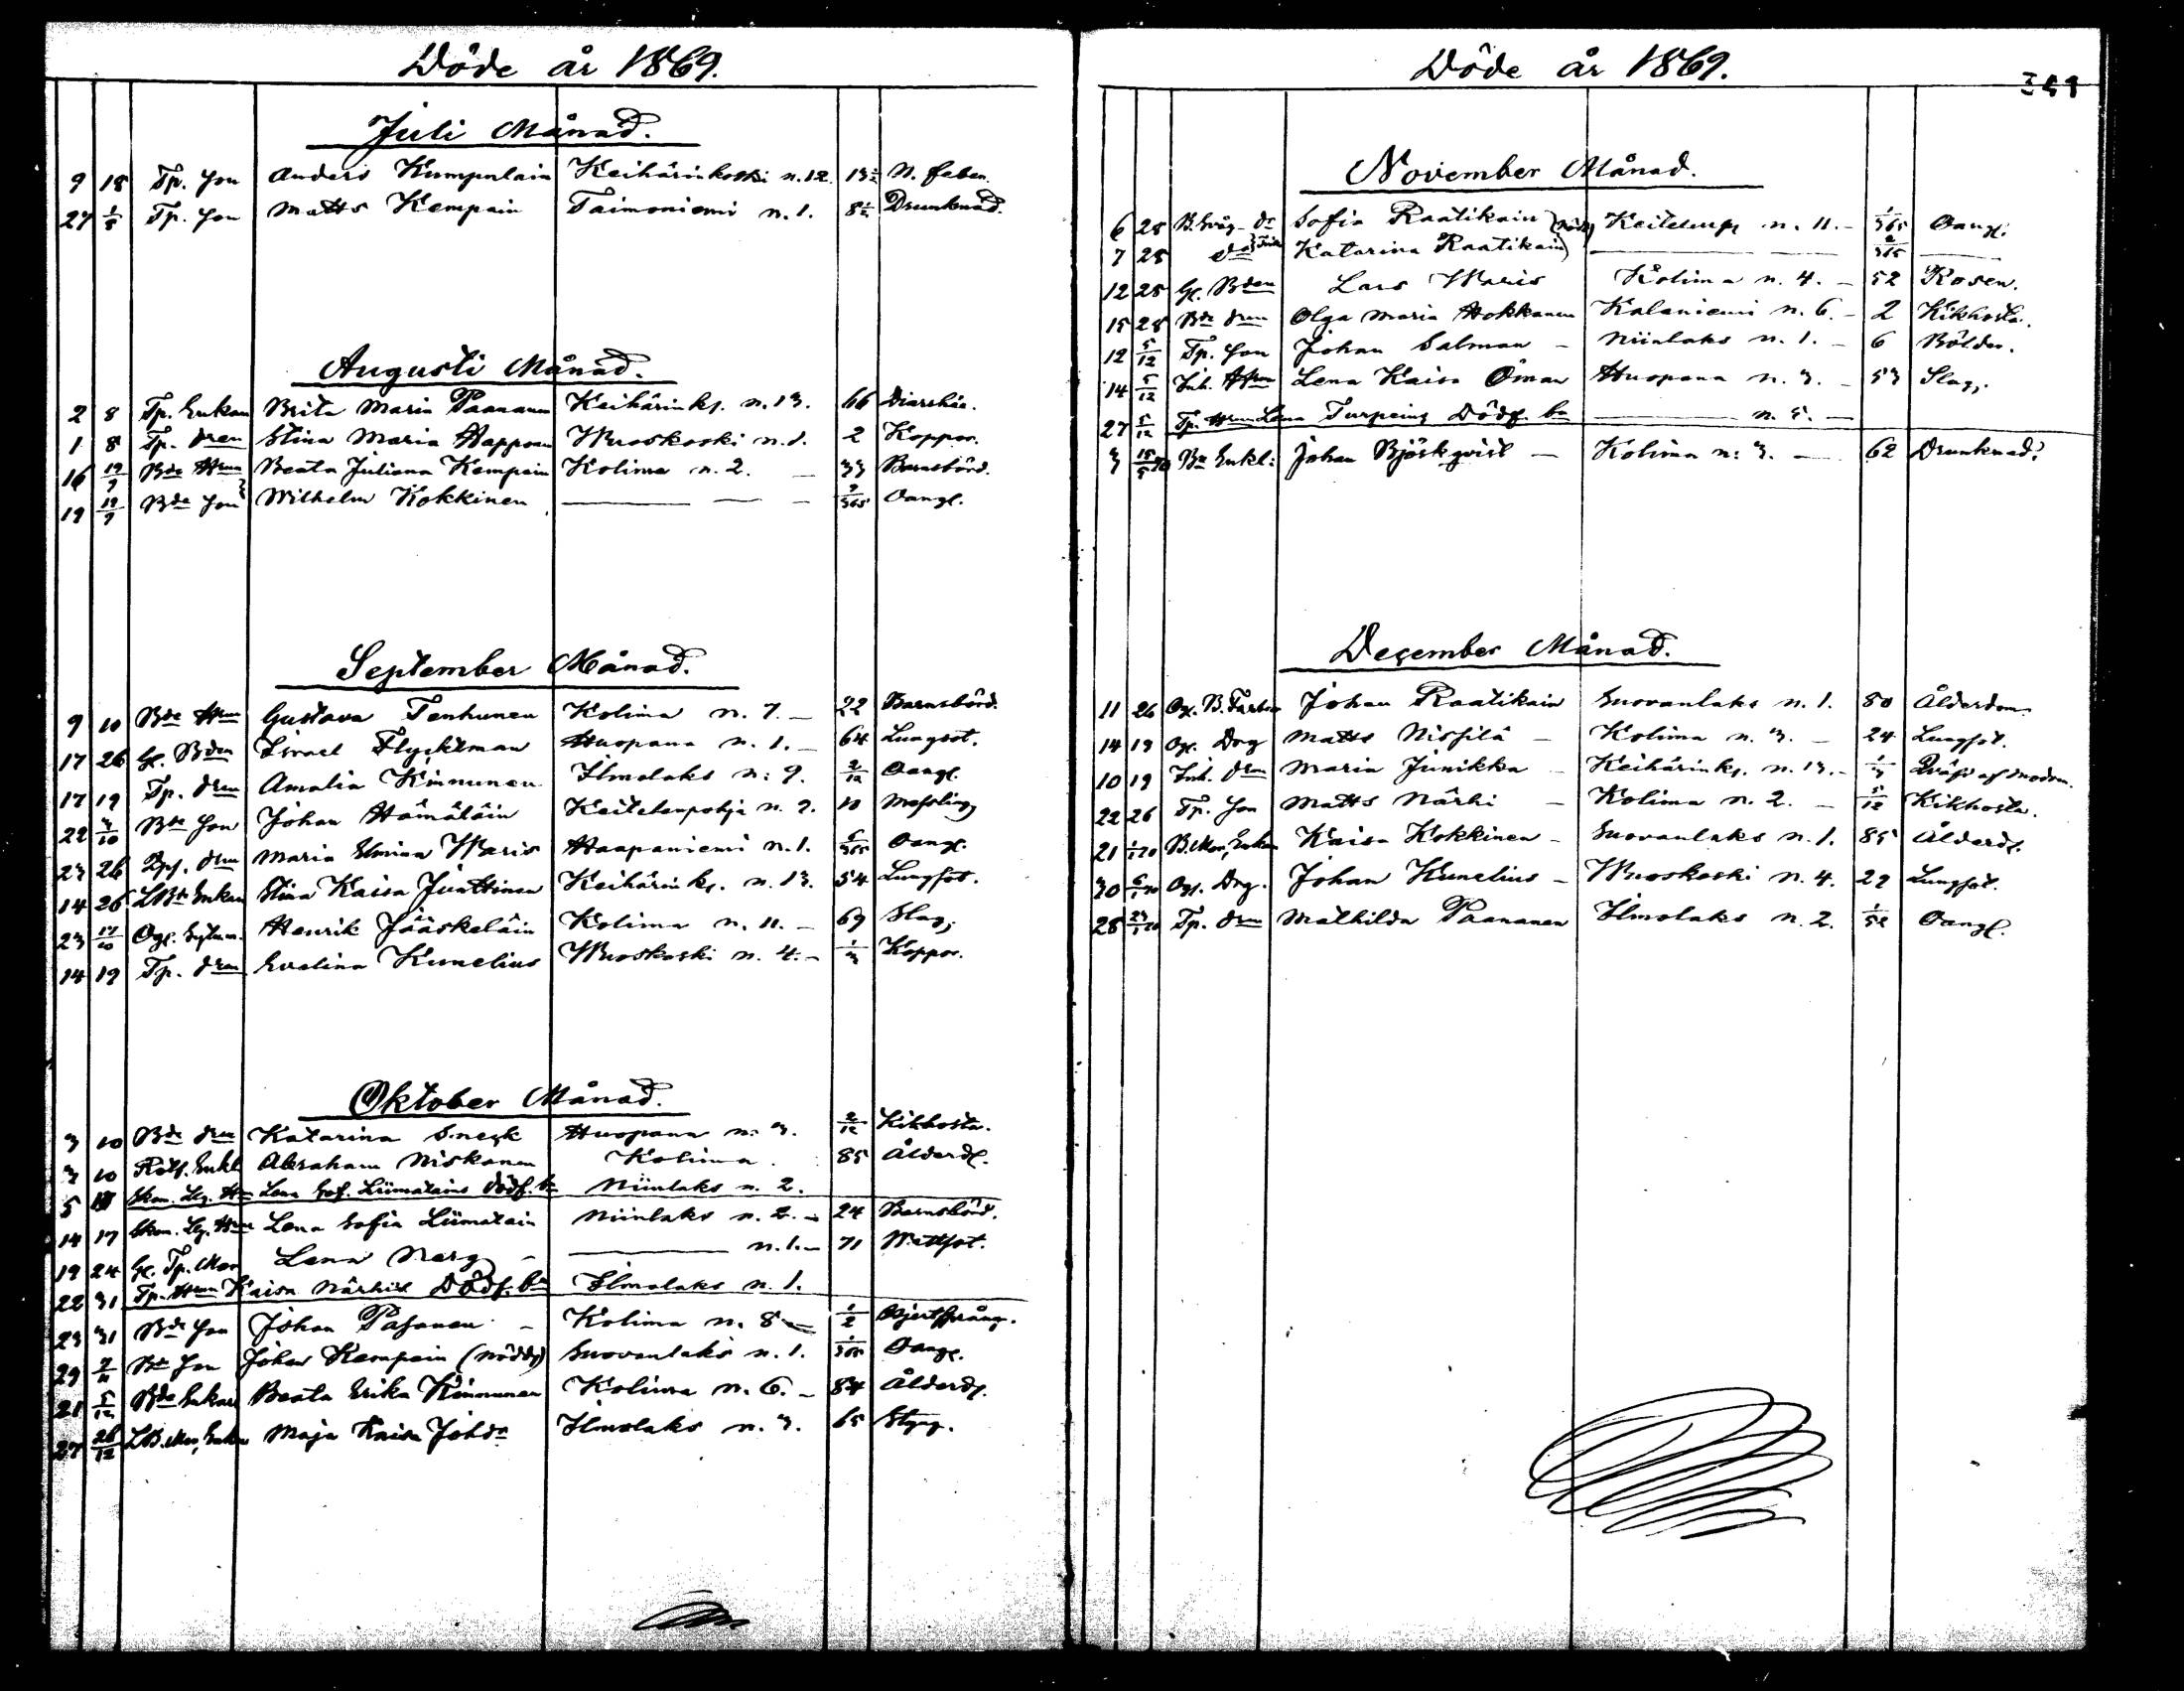 Döde år 1869.
Juli Månad.
9 18 Tp. Son Anders Kumpulain Keihärinkoski n. 12. 13½ N. feber.
27 1/8 Tp. Son Matts Kempain Taimoniemi n. 1. 8½ Drunknad.
Augusti Månad.
2 8 Tp. Enkan Brita Maria Paananen Keihärinks. n. 13. 66 Diarrhée.
1 8 Tp. dren Stina Maria Happonen Wuoskoski n. 1. 2 Koppor.
16 19/9 Bde Hru Beata Juliana Kempain Kolima n. 2. — 33 Barnsbörd.
19 19/9 Bde Son Wilhelm Kokkinen — — — 9/365 Oangf.
September Månad.
9 10 Bde Hru Gustava Tenhunen Kolima n. 7. — 22 Barnsbörd.
17 26 Gl. Bden Israel Flycktman Huopana n. 1. — 64 Lungsot.
17 19 Tp. dren Amalia Kinnunen Ilmolaks n: 9. 2/12 Oangf.
22 3/10 Bde Son Johan Hämäläin Keitelenpohja n. 2. 10 Messling
23 26 dren Maria Elmina Waris Haapaniemi n. 1. 6/365 Oangf.
14 26 LBde Enkan Stina Kaisa Junttinen Keihärinks. n. 13. 54 Lungsot.
23 17/10 Ogf. Henrik Jääskeläin Kolima n. 11. — 69 Slag.
14 19 Tp. dren Evelina Kunelius Wuoskoski n. 4. — 1/3 Koppor.
Oktober Månad.
3 10 Bde dren Katarina Sneck Huopana n: 3. 2/12 Kikhosta.
3 10 Rotf. Enkl. Abraham Niskanen Kolima. 85 Ålderdf.
5 Skom. Lg. Hru Lena Sof. Liimatains dödf. bn Niinlaks n. 2.
14 17 Skom. Lg. Hru Lena Sofia Liimatain Niinlaks n. 2. — 24 Barnsbörd.
19 24 Gl. Tp. Mor Lena Narg — — n. 1. — 71 Wattsot.
22 31 Tp. Hrun Kaisa Närhis Dödf. bn Ilmolaks n. 1.
23 31 Bde Son Johan Pasanen — Kolima n. 8 — 1/2 Hjertsprång.
29 Bde Son Johan Kempain (nöddp) Suovanlaks n. 1. 1/365 Oangf.
21 5/12 Bde Enkan Beata Erika Kinnunen Kolima n. 6. — 84 Ålderdf.
27 26/12 LB. Mor, Enka Maja Kaisa Johdr Ilmolaks n. 3. 65 Styng.
Döde år 1869.
November Månad.
6 28 B. Svåg. dr Sofia Raatikain Keitelenpo n. 11. — 1/365 Oangf.
7 28 do Katarina Raatikain — — 2/365 —
12 28 Gl. Bden Lars Waris Kolima n. 4. — 52 Rosen.
15 28 Bde dren Olga Maria Hokkanen Kalaniemi n. 6. — 2 Kikhosta.
12 5/12 Tp. Son Johan Salman — Niinlaks n. 1. — 6 Bölder.
14 5/12 Inh. Hru Lena Kaisa Öman Huopana n. 3. — 53 Slag.
27 5/12 Tp. Hrun Lena Turpeins Dödf. bn — n. 5. —
3 15/5 70 Bn Enkl: Johan Björkqvist — Kolima n: 3. — 62 Drunknad.
December Månad.
11 26 Og. B. Farbr. Johan Raatikain Suovanlaks n. 1. 80 Ålderdom
14 19 Ogf. Drg Matts Nissilä — Kolima n. 3. — 24 Lungsot.
10 19 Inh. dren Maria Junikka — Keihärinks. n. 13. — 1/3 Qväfd af modren.
22 26 Tp. Son Matts Närhi — Kolima n. 2. — 5/12 Kikhosta.
21 1/1 70 B. Mor, Enka Kaisa Kokkinen — Suovanlaks n. 1. 85 Ålderdf.
30 6/1 70 Ogf. Drg. Johan Kunelius — Wuoskoski n. 4. 29 Lungsot.
28 23/1 70 Tp. dren Mathilda Paananen Ilmolaks n. 2. 1/52 Oangf.